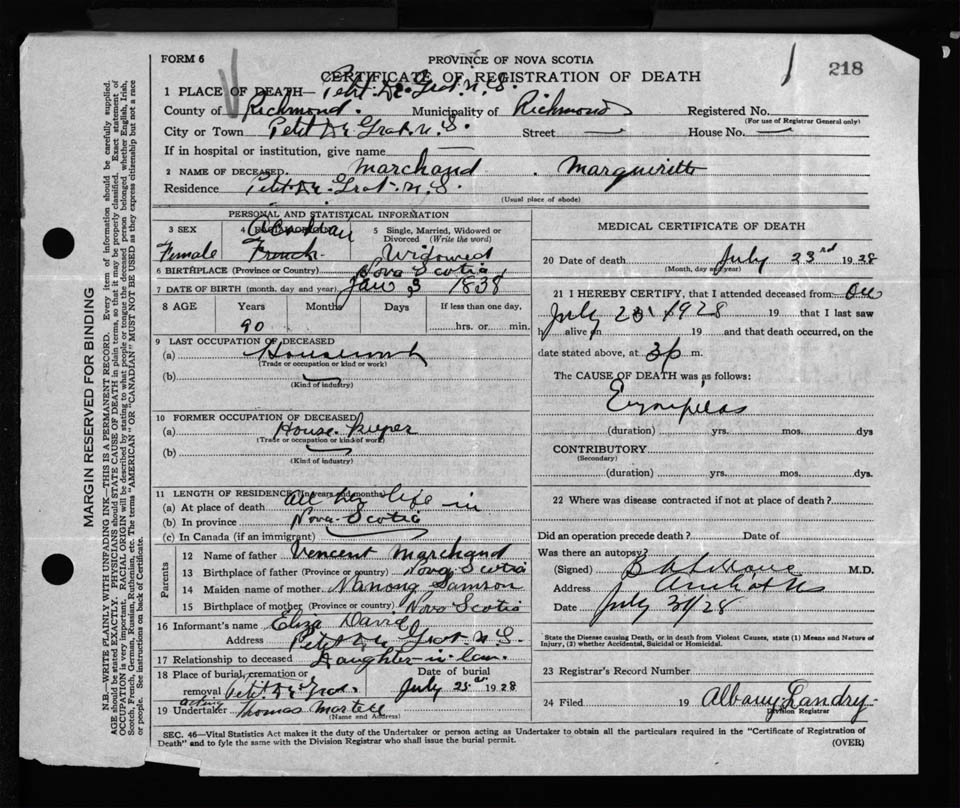 FORM 6
PROVINCE OF NOVA SCOTIA
CERTIFICATE OF REGISTRATION OF DEATH
218
1 PLACE OF DEATH— Petit De Grat N. S.
County of Richmond. Municipality of Richmond Registered No.
(For use of Registrar General only)
City or Town Petit De Grat N. S. Street — House No. —
If in hospital or institution, give name —
2 NAME OF DECEASED. Marchand . Marguiritte
Residence Petit De Grat N. S.
(Usual place of abode)
PERSONAL AND STATISTICAL INFORMATION
3 SEX 4 5 Single, Married, Widowed or Divorced (Write the word)
Female French Widowed
6 BIRTHPLACE (Province or Country) Nova Scotia
7 DATE OF BIRTH (month, day and year) Jan 3 1838
8 AGE Years Months Days If less than one day,
90 hrs. or min.
9 LAST OCCUPATION OF DECEASED
(a) Housework
(Trade or occupation or kind or work)
(b)
(Kind of industry)
10 FORMER OCCUPATION OF DECEASED
(a) House keeper
(Trade or occupation or kind of work)
(b)
(Kind of industry)
11 LENGTH OF RESIDENCE (In years and months)
(a) At place of death all her life in
(b) In province Nova-Scotia
(c) In Canada (if an immigrant)
Parents
12 Name of father Vencent Marchand
13 Birthplace of father (Province or country) Nova Scotia
14 Maiden name of mother Samson
15 Birthplace of mother (Province or country) Nova Scotia
16 Informant's name Eliza David
Address Petit De Grat N. S.
17 Relationship to deceased Daughter-in-law.
18 Place of burial, cremation or removal Petit De Grat. Date of burial July 25th 1928
19 Undertaker acting Thomas Martell
(Name and Address)
MEDICAL CERTIFICATE OF DEATH
20 Date of death July 23rd 1928
(Month, day and year)
21 I HEREBY CERTIFY, that I attended deceased from
July 1928 19 that I last saw
h alive on 19 and that death occurred, on the
date stated above, at 3 p m.
The CAUSE OF DEATH was as follows:
Erysipelas
(duration) yrs. mos. dys
CONTRIBUTORY
(Secondary)
(duration) yrs. mos. dys.
22 Where was disease contracted if not at place of death?
Did an operation precede death? Date of
Was there an autopsy?
(Signed) M.D.
Address Arichat NS
Date July /28
State the Disease causing Death, or in death from Violent Causes, state (1) Means and Nature of Injury, (2) whether Accidental, Suicidal or Homicidal.
23 Registrar's Record Number
24 Filed 19 Albany Landry
Division Registrar
SEC. 46—Vital Statistics Act makes it the duty of the Undertaker or person acting as Undertaker to obtain all the particulars required in the "Certificate of Registration of
Death" and to fyle the same with the Division Registrar who shall issue the burial permit.
(OVER)
MARGIN RESERVED FOR BINDING
N.B.—WRITE PLAINLY WITH UNFADING INK—THIS IS A PERMANENT RECORD. Every item of information should be carefully supplied.
AGE should be stated EXACTLY. PHYSICIANS should STATE CAUSE OF DEATH in plain terms, so that it may be properly classified. Exact statement of
OCCUPATION is very important. RACIAL ORIGIN will be described by stating to what people or tongue the deceased person belonged whether English, Irish,
Scotch, French, German, Russian, Ruthenian, etc. The terms "AMERICAN" OR "CANADIAN" MUST NOT BE USED as they express citizenship but not a race
or people. See instructions on back of Certificate.